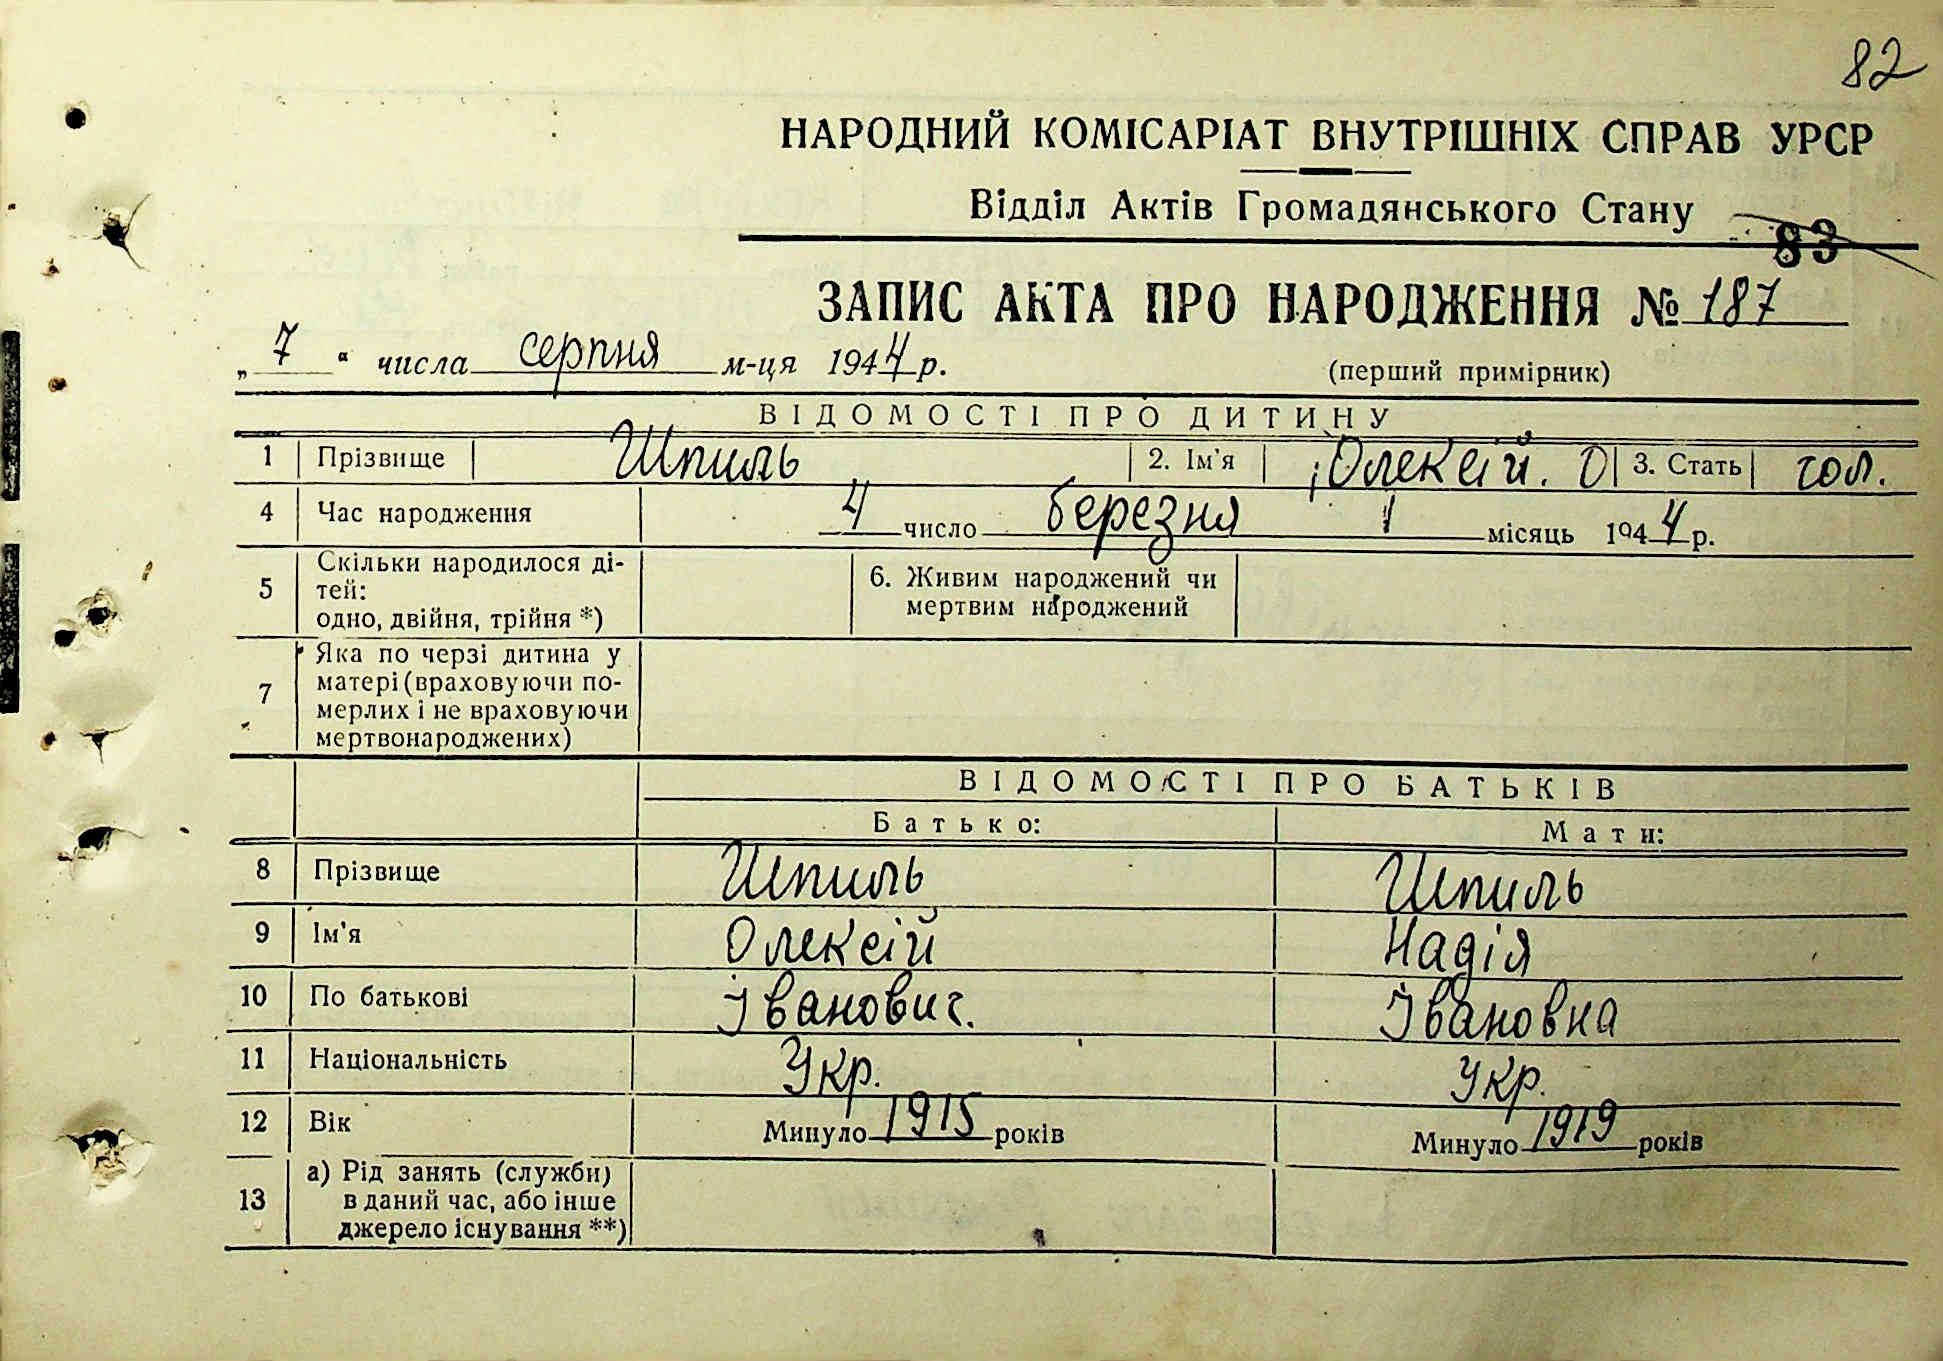 82
НАРОДНИЙ КОМІСАРІАТ ВНУТРІШНІХ СПРАВ УРСР
Відділ Актів Громадянського Стану
83
ЗАПИС АКТА ПРО НАРОДЖЕННЯ № 187
„ 7 “ числа серпня м-ця 1944 р. (перший примірник)
ВІДОМОСТІ ПРО ДИТИНУ
1 Прізвище Шпиль 2. Ім'я Олексій. О 3. Стать чол.
4 Час народження 4 число березня місяць 1944 р.
5 Скільки народилося ді-
тей:
одно, двійня, трійня *)
6. Живим народжений чи
мертвим народжений
7 Яка по черзі дитина у
матері (враховуючи по-
мерлих і не враховуючи
мертвонароджених)
ВІДОМОСТІ ПРО БАТЬКІВ
Батько: Мати:
8 Прізвище Шпиль Шпиль
9 Ім'я Олексій Надія
10 По батькові Іванович. Івановна
11 Національність Укр. Укр.
12 Вік Минуло 1915 років Минуло 1919 років
13 а) Рід занять (служби)
в даний час, або інше
джерело існування **)